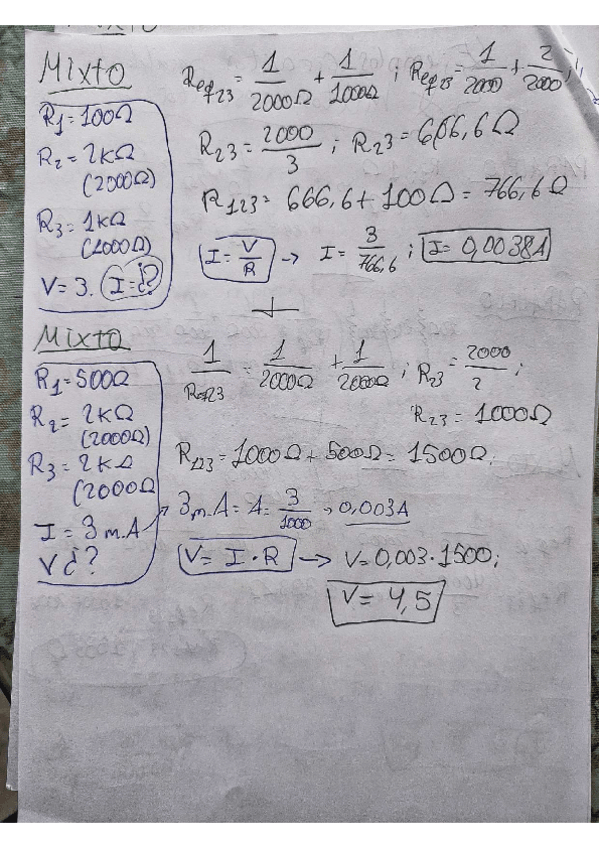 Mixto
R1=100Ω
R2= 2kΩ
(2000Ω)
R3= 1kΩ
(1000Ω)
V= 3. I=¿?
Req23 = 1/2000Ω + 1/1000Ω ; Req23 = 1/2000 + 2/2000 ;
R23 = 2000/3 ; R23 = 666,6Ω
R123= 666,6 + 100Ω = 766,6Ω
I = V/R → I = 3/766,6 ; I= 0,0038A
Mixto
R1=500Ω
R2= 2kΩ
(2000Ω)
R3= 2kΩ
(2000Ω
I = 3m.A
V¿?
1/Req23 = 1/2000Ω + 1/2000Ω ; R23 = 2000/2 ;
R23 = 1000Ω
R123 = 1000Ω + 500Ω = 1500Ω;
3m.A = A = 3/1000 → 0,003A
V= I · R → V= 0,003 · 1500;
V= 4,5